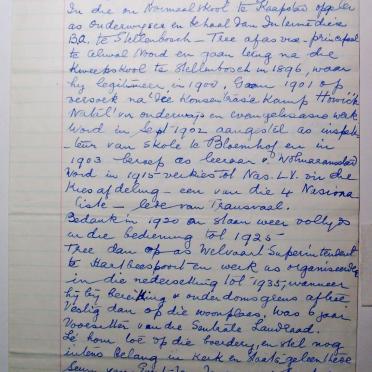 In die ou Normaalskool te Kaapstad opgelei
as onderwyser en behaal dan Intermediere
B.A. te Stellenbosch - Tree af as vise-principaal
te Aliwal Noord en gaan terug na die
Kweekskool te Stellenbosch in 1896, waar
hy legitimeer in 1900. Gaan 1901 op
versoek na die Konsentrasie Kamp Howick
Natal vir onderwys en evangelisasie werk
Word in Sept 1902 aangestel as inspek-
teur van skole te Bloemhof en in
1903 beroep as leeraar v. Wolmaransstad
Word in 1915 verkies tot Nas. L.V. vir die
Kiesafdeling - een van die 4 Nasiona
liste - lede van Transvaal.
Bedank in 1920 en staan weer voltyds
in die bediening tot 1925
Tree dan op as Welvaart Superintendent
te Hartbeespoort en werk as organiseerder
in die nedersetting tot 1935, wanneer
hy by bereiking v ouderdomsgrens aftree
Vestig dan op die woonplaas, was 6 jaar
Voorsitter van die Sentrale Landraad.
Lê hom toe op die boerdery, en stel nog
intens belang in Kerk en Staats-geleenthede
Seun van